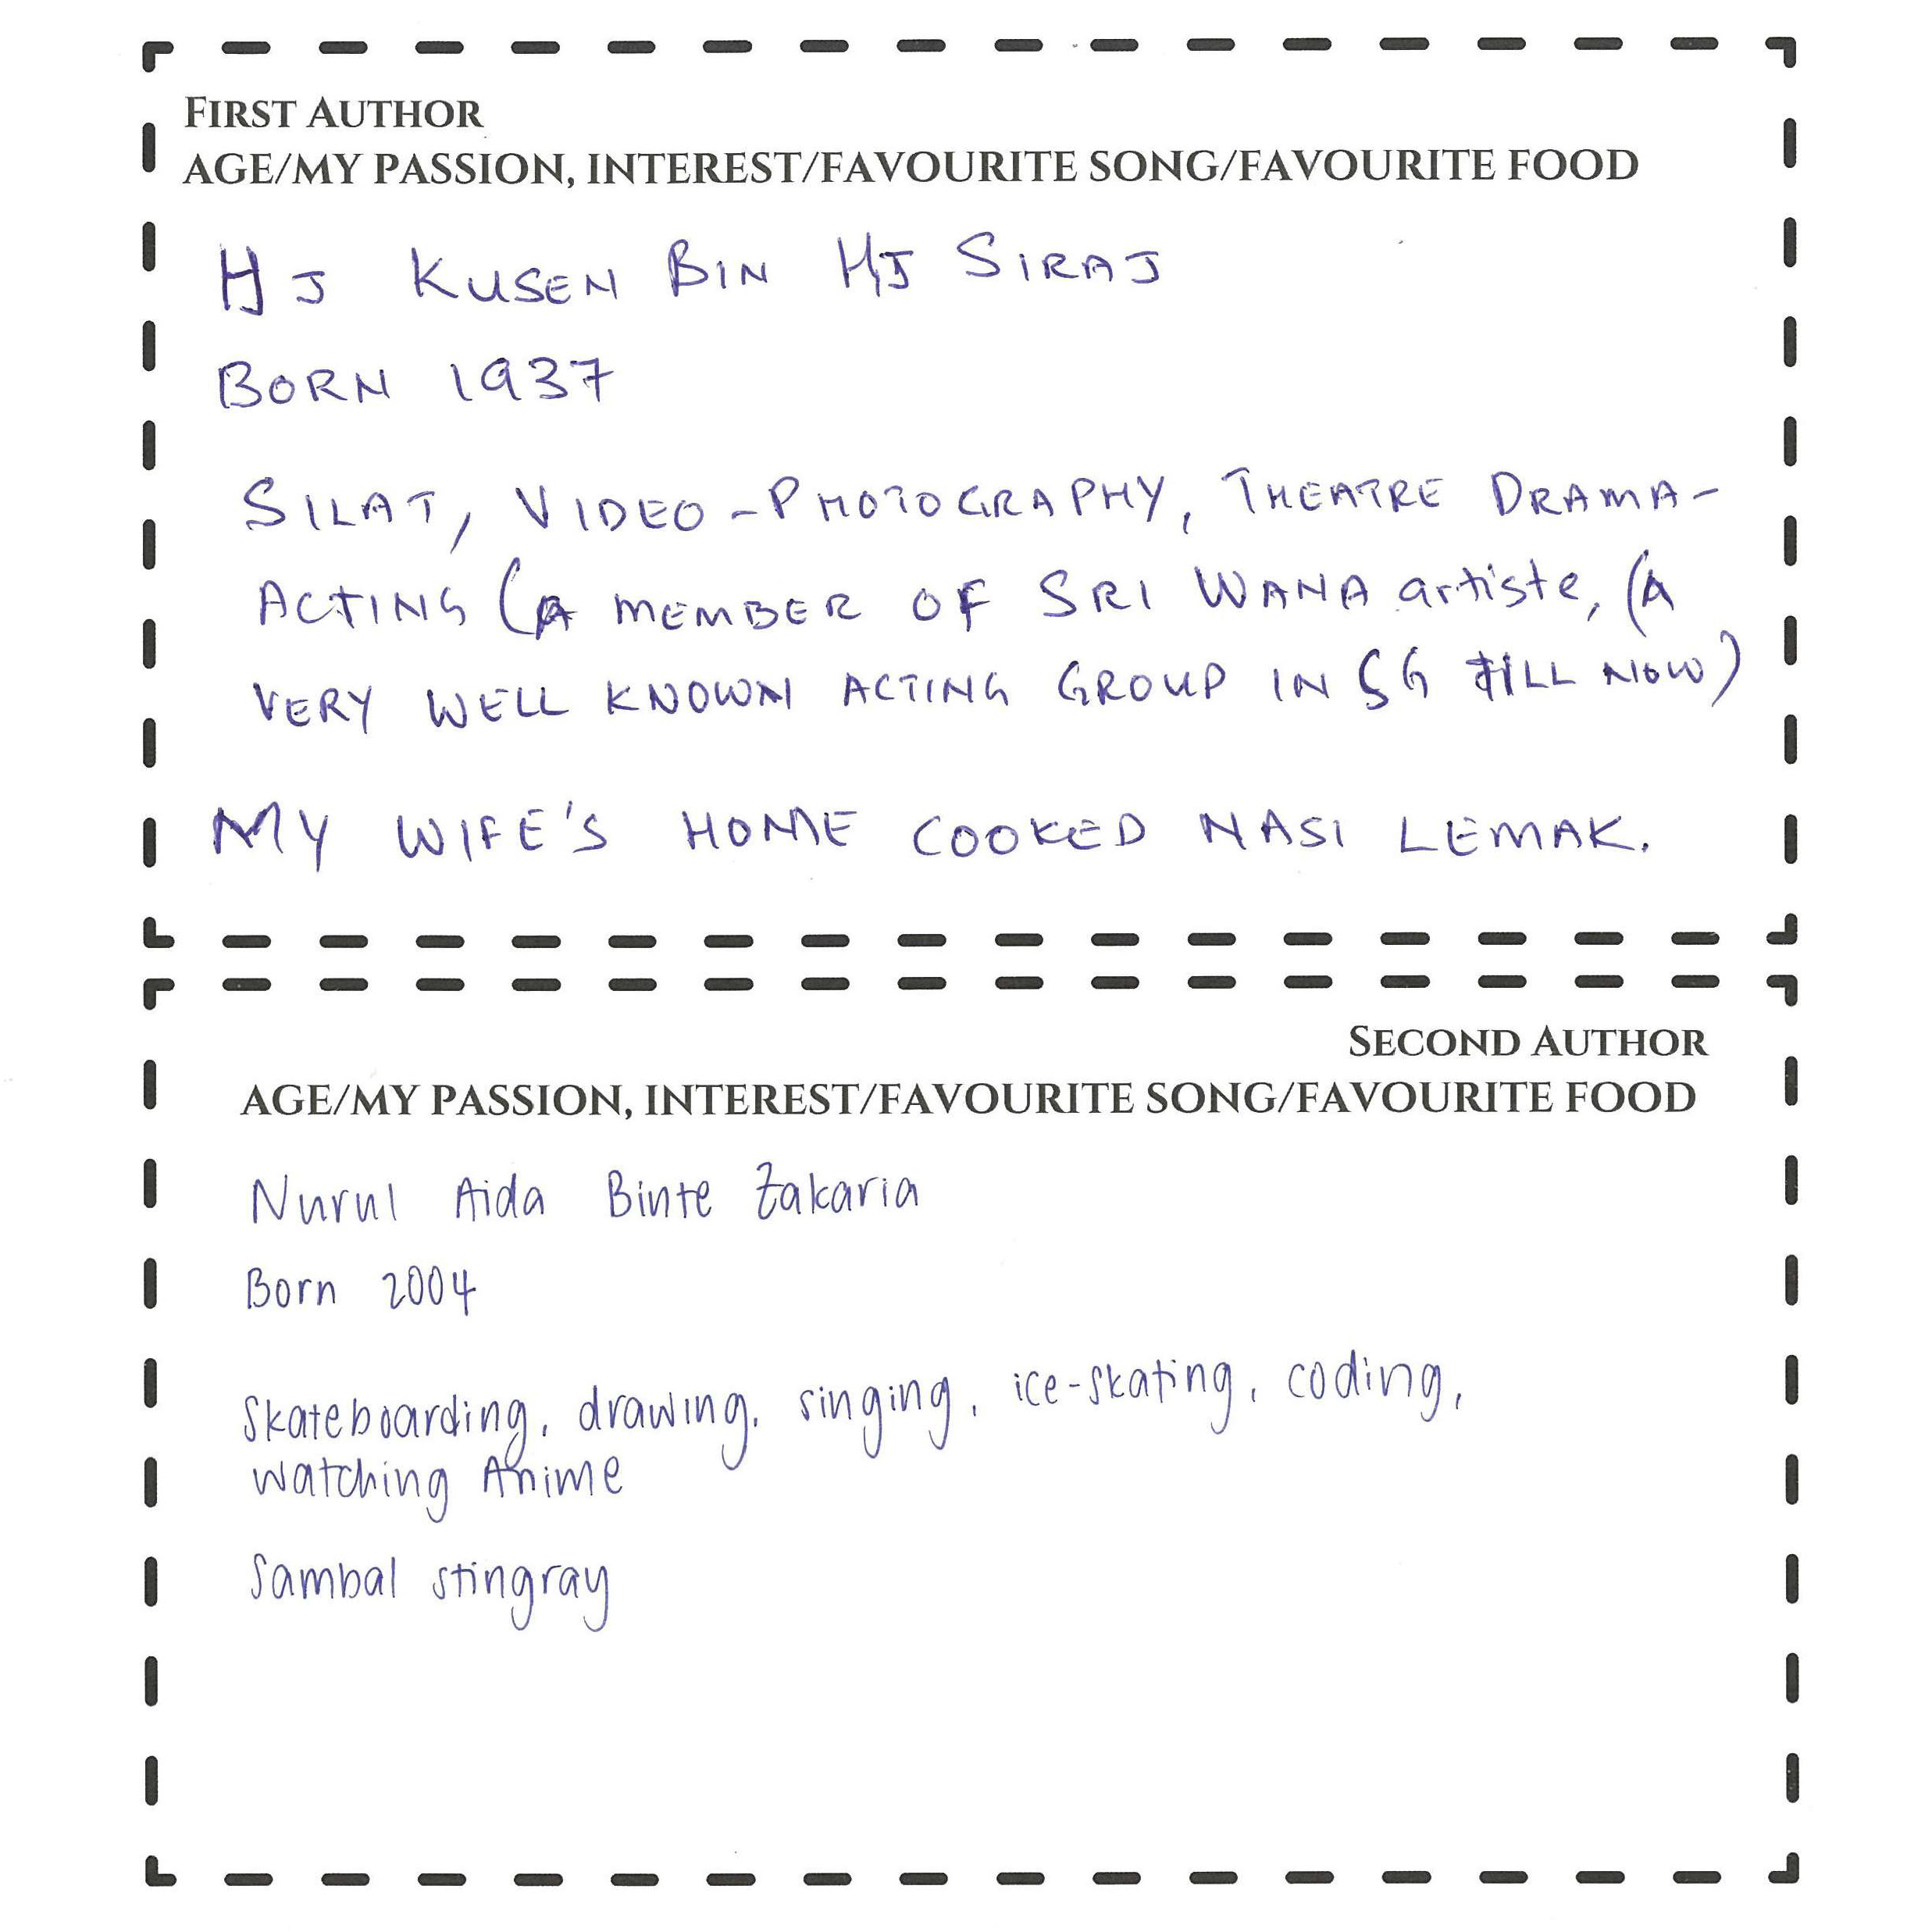 FIRST AUTHOR
AGE/MY PASSION, INTEREST/FAVOURITE SONG/FAVOURITE FOOD
HJ KUSEN BIN HJ SIRAJ
BORN 1937
SILAT, VIDEO-PHOTOGRAPHY, THEATRE DRAMA-
ACTING (A MEMBER OF SRI WANA artiste, (A
VERY WELL KNOWN ACTING GROUP IN SG TILL NOW)
MY WIFE'S HOME COOKED NASI LEMAK.
SECOND AUTHOR
AGE/MY PASSION, INTEREST/FAVOURITE SONG/FAVOURITE FOOD
Nurul Aida Binte Zakaria
Born 2004
Skateboarding, drawing, singing, ice-skating, coding,
watching Anime
Sambal stingray